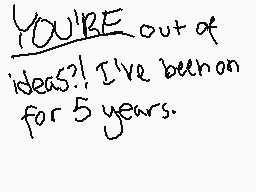 YOU'RE out of
ideas?! I've been on
for 5 years.